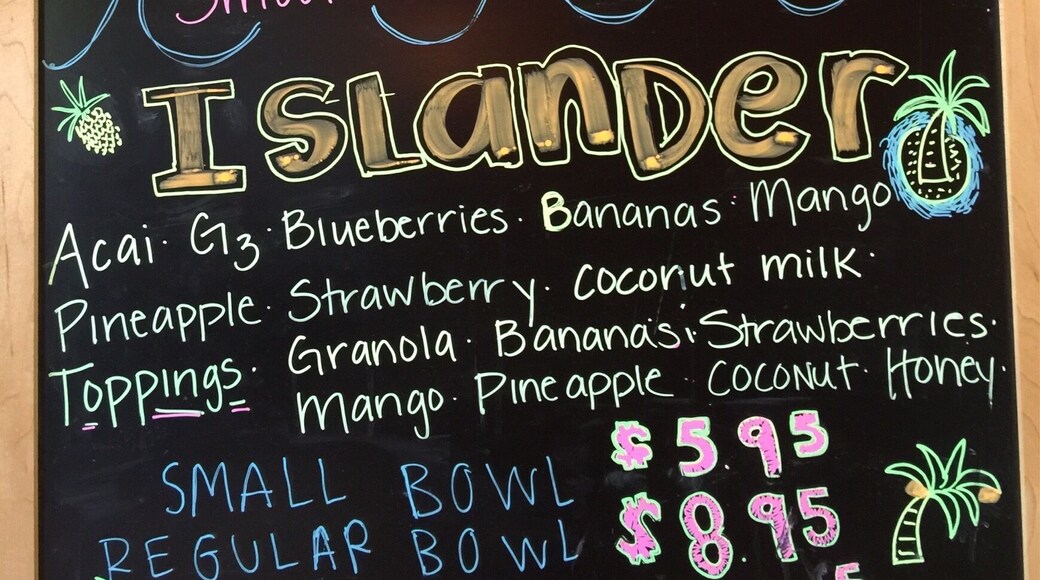 IsLanDer
Acai · G3 · Blueberries · Bananas · Mango
Pineapple · Strawberry · coconut milk ·
Toppings · Granola · Bananas · Strawberries ·
Mango · Pineapple · coconut · Honey ·
SMALL BOWL $5.95
REGULAR BOWL $8.95